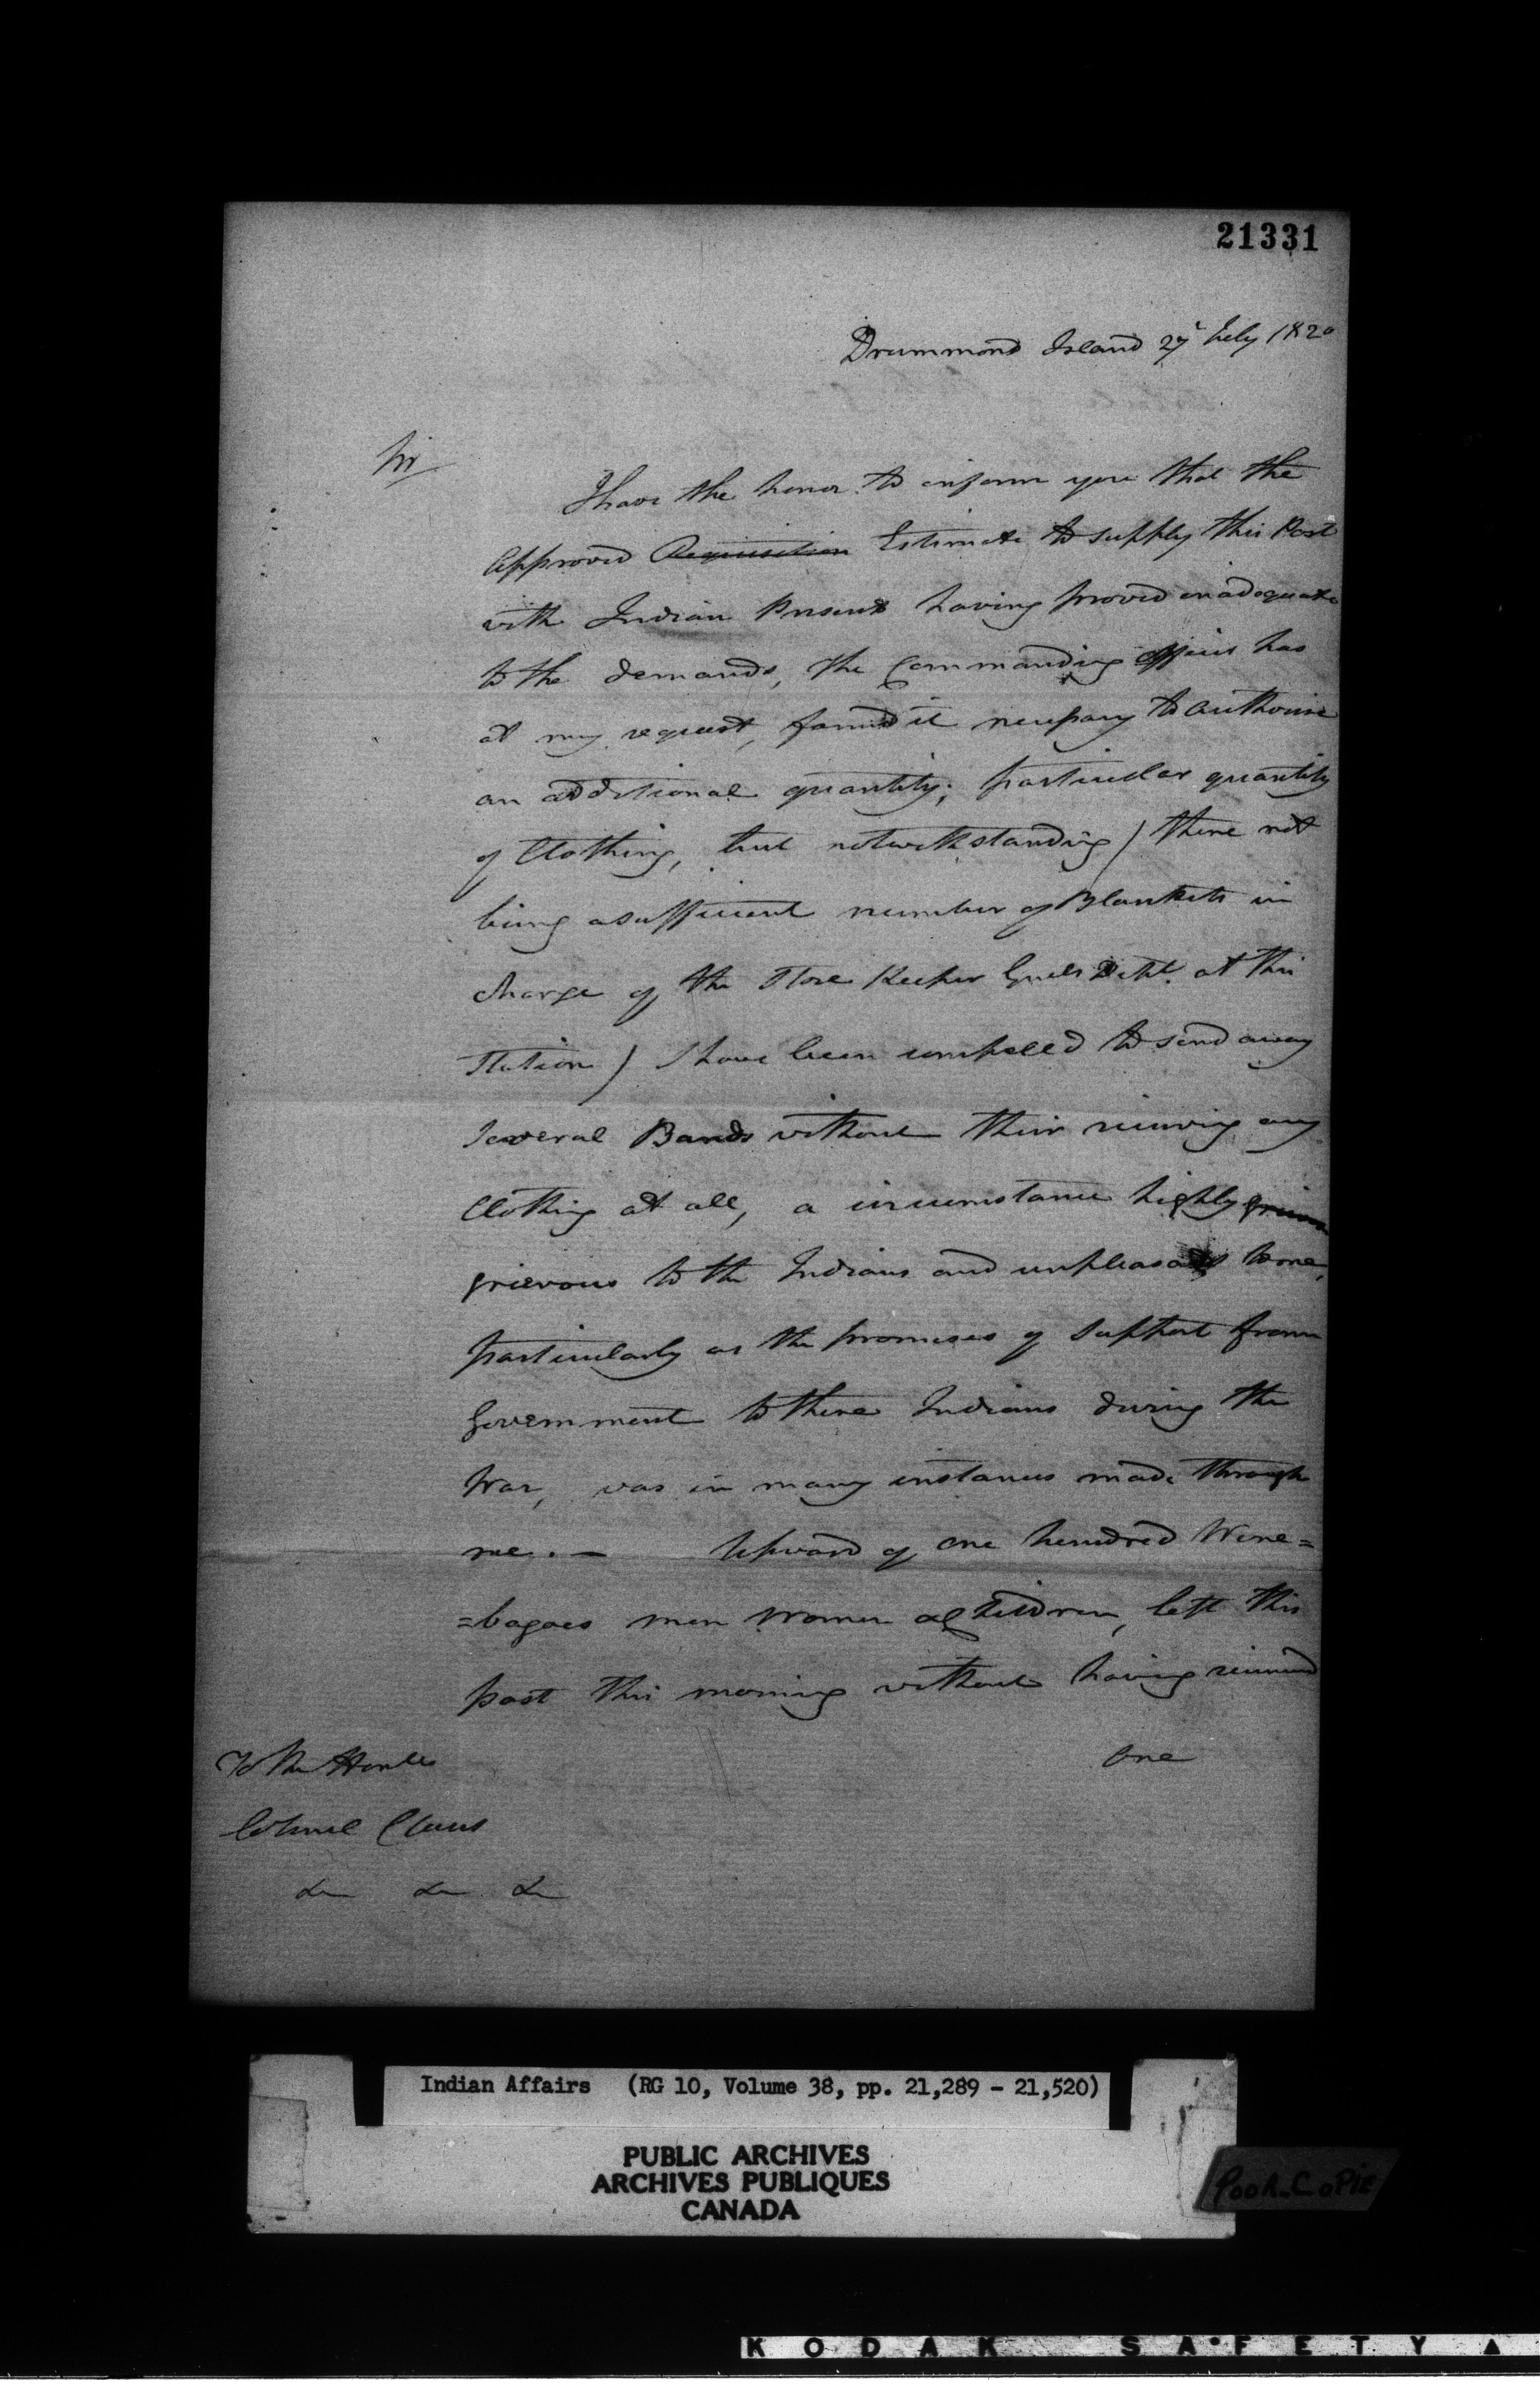 21331
Drummond Island 27 July 1820
Sir
I have the honor to inform you that the
approved Requisition Estimate to supply this Post
with Indian Presents having proved inadequate
to the demands, the Commanding Officer has
at my request, found it necessary to authorise
an additional quantity; particular quantity
of Clothing, but notwithstanding) there not
being a sufficient number of Blankets in
charge of the Store Keeper Genls Dept. at this
Station) I have been compelled to send away
several Bands without their receiving any
Clothing at all, a circumstance highly
grievous to the Indians and unpleasant to me,
particularly as the promises of support from
Government to these Indians during the
War, was in many instances made through
me. — Upward of one hundred Wine=
=bagoes men women & Children, left this
post this morning without having received
one
To The Honble
Colonel Claus
&c &c &c
Indian Affairs (RG 10, Volume 38, pp. 21,289 - 21,520)
PUBLIC ARCHIVES
ARCHIVES PUBLIQUES
CANADA
Poor Copie
KODAK SAFETY